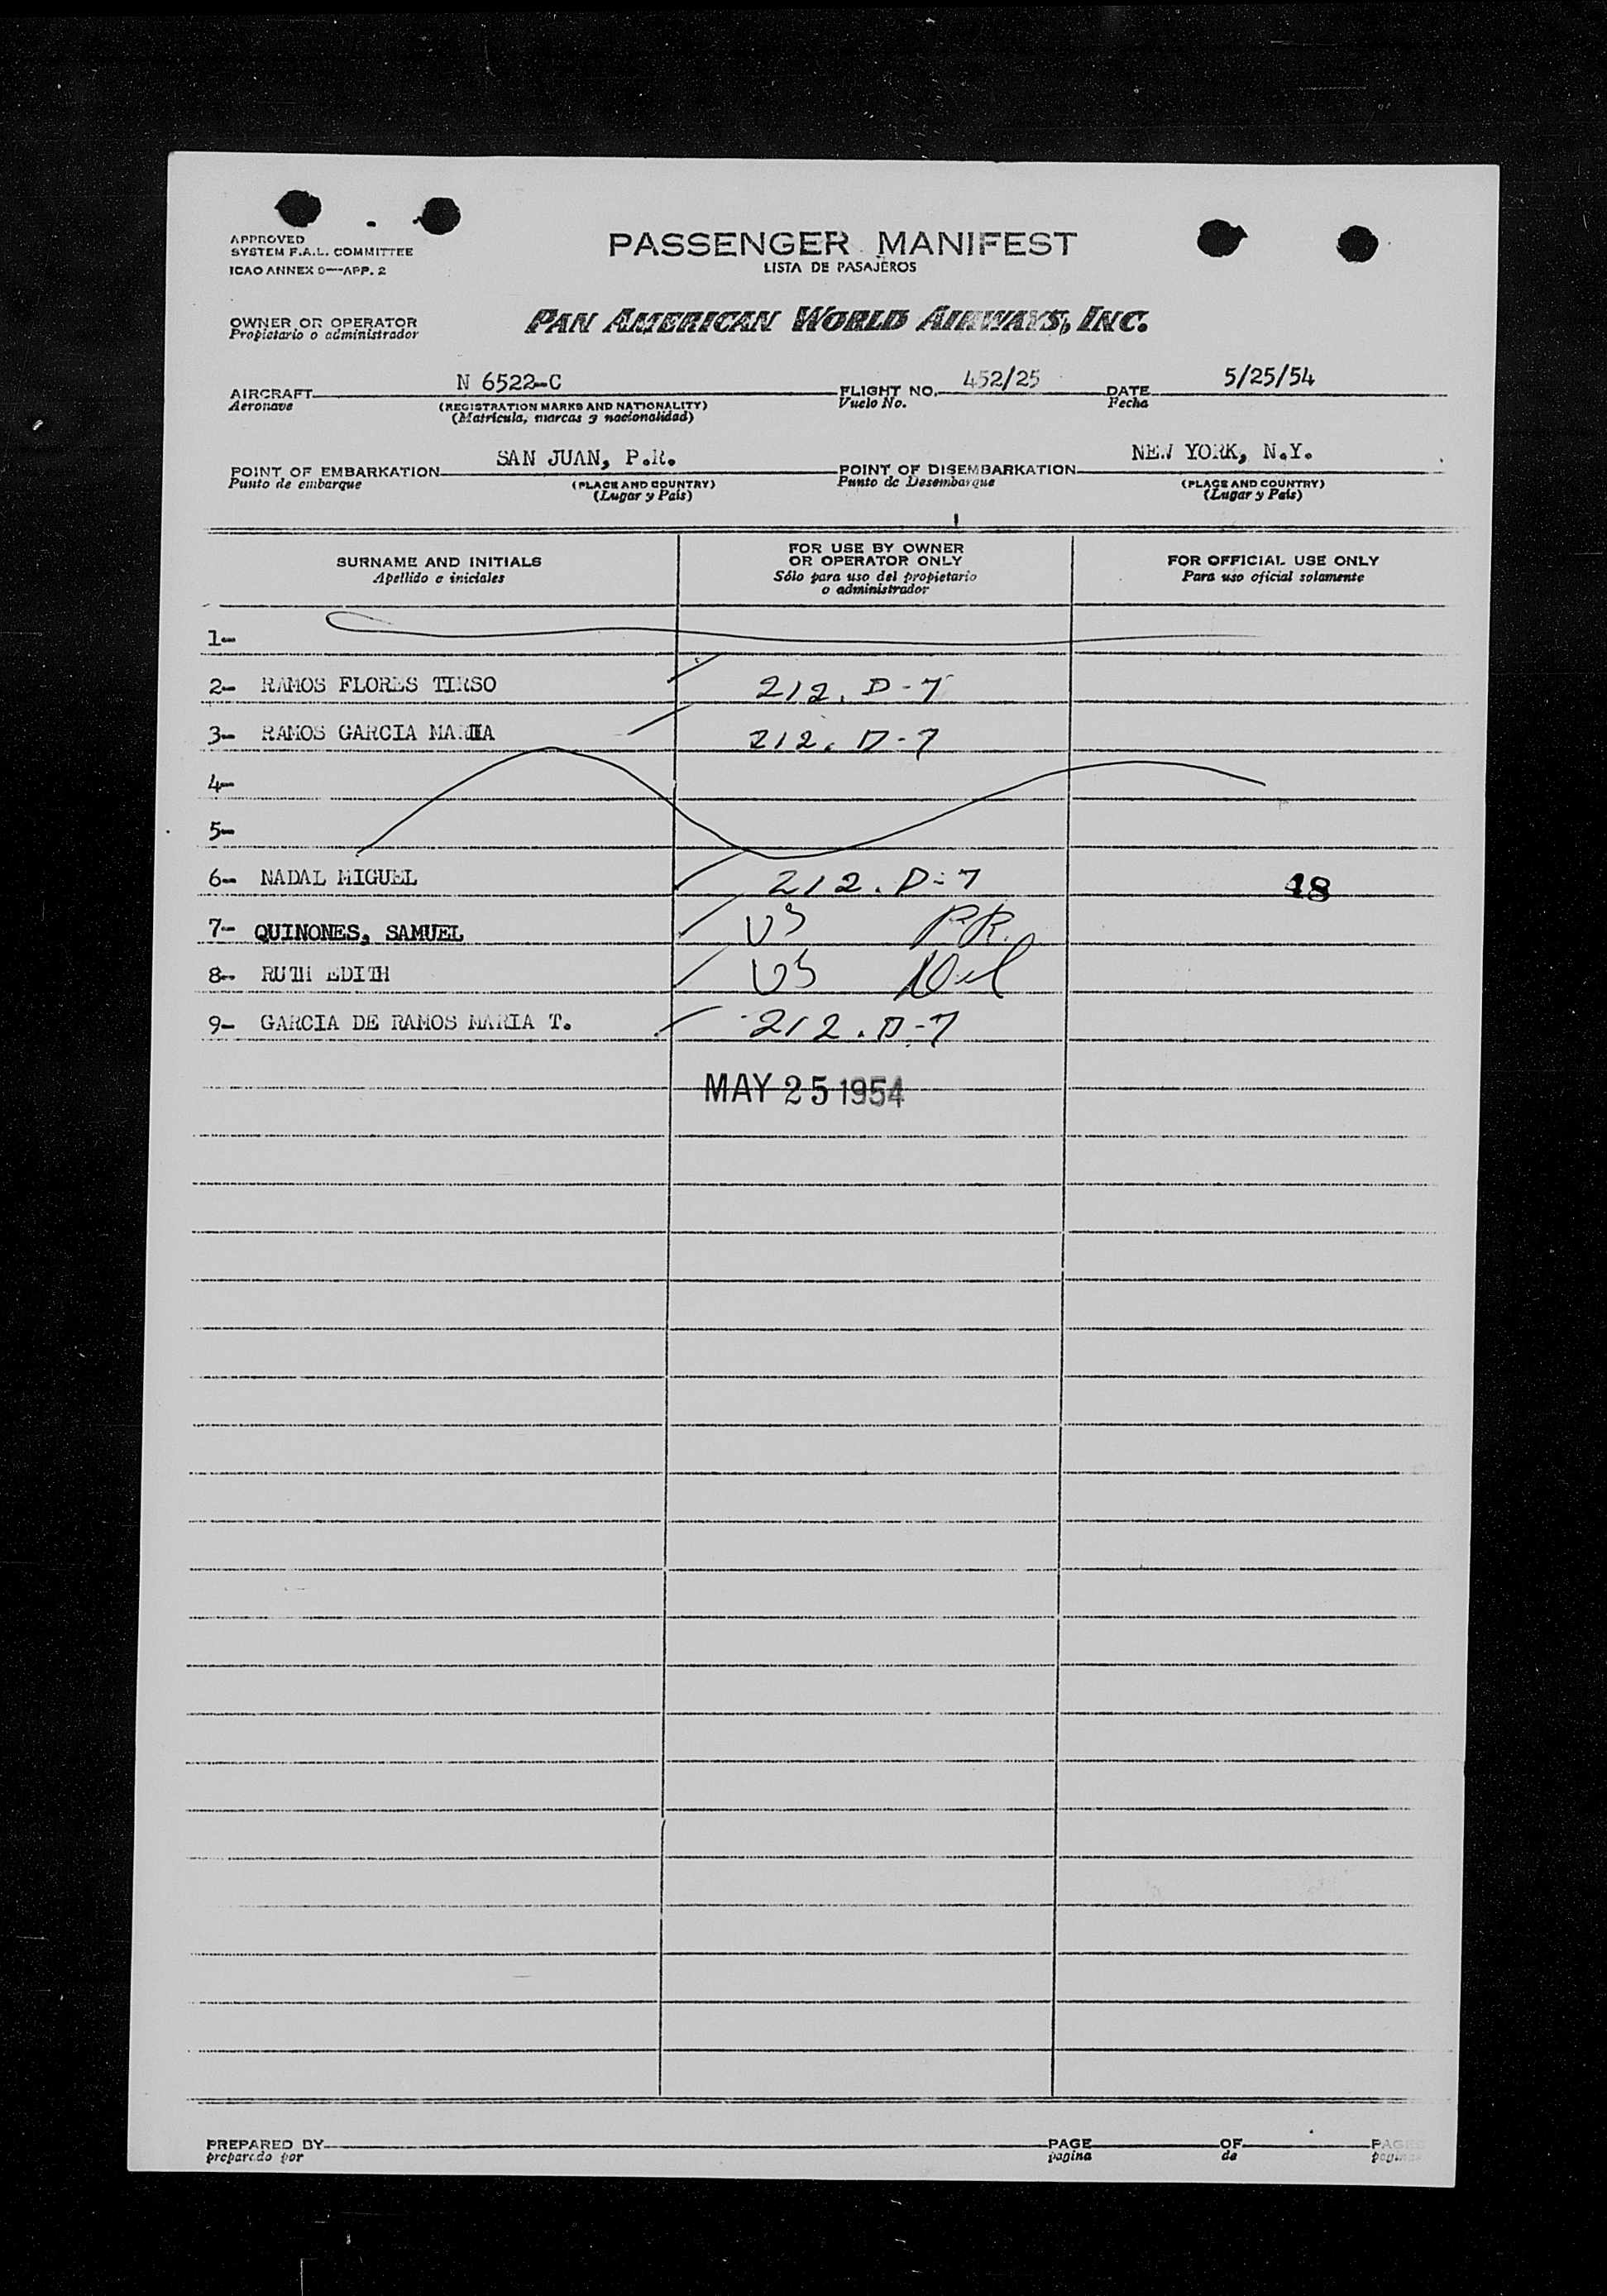 APPROVED
SYSTEM F.A.L. COMMITTEE
ICAO ANNEX 9—APP. 2
PASSENGER MANIFEST
LISTA DE PASAJEROS
OWNER OR OPERATOR
Propietario o administrador
PAN AMERICAN WORLD AIRWAYS, INC.
AIRCRAFT N 6522-C FLIGHT NO. 452/25 DATE 5/25/54
Aeronave (REGISTRATION MARKS AND NATIONALITY) Vuelo No. Fecha
(Matrícula, marcas y nacionalidad)
POINT OF EMBARKATION SAN JUAN, P.R. POINT OF DISEMBARKATION NEW YORK, N.Y.
Punto de embarque (PLACE AND COUNTRY) Punto de Desembarque (PLACE AND COUNTRY)
(Lugar y País) (Lugar y País)
SURNAME AND INITIALS
Apellido e iniciales
FOR USE BY OWNER
OR OPERATOR ONLY
Sólo para uso del propietario
o administrador
FOR OFFICIAL USE ONLY
Para uso oficial solamente
1-
2- RAMOS FLORES TIRSO 212. D-7
3- RAMOS GARCIA MARIA 212. D-7
4-
5-
6- NADAL MIGUEL 212. D-7 18
7- QUINONES, SAMUEL US P.R.
8- RUTH EDITH US
9- GARCIA DE RAMOS MARIA T. 212. D-7
MAY 25 1954
PREPARED BY PAGE OF PAGES
preparado por pagina de paginas